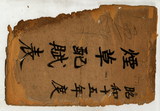 昭和十五年度
煙草配賦表